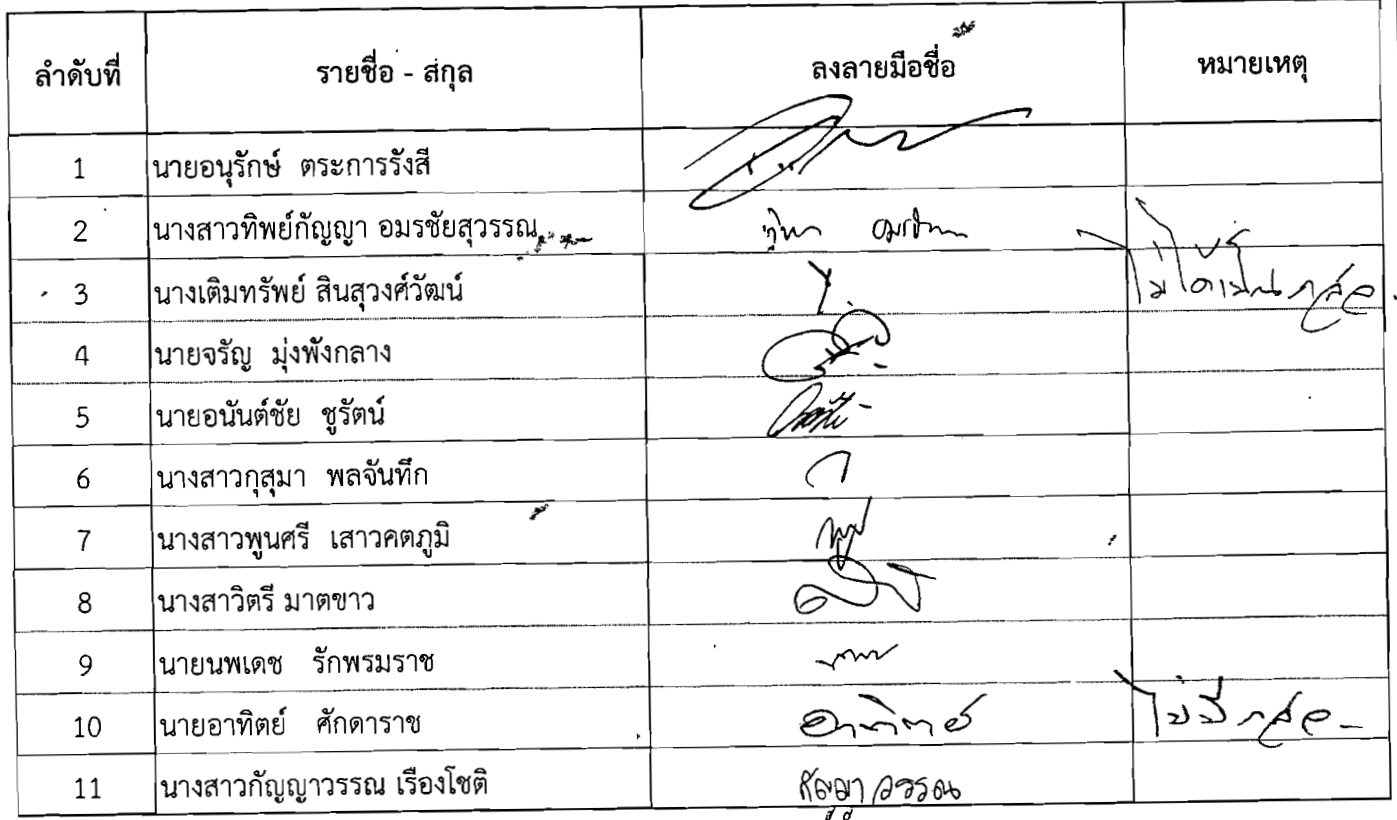 ลำดับที่ รายชื่อ - สกุล ลงลายมือชื่อ หมายเหตุ
1 นายอนุรักษ์ ตระการรังสี
2 นางสาวทิพย์กัญญา อมรชัยสุวรรณ
3 นางเติมทรัพย์ สินสุวงศ์วัฒน์
4 นายจรัญ มุ่งพังกลาง
5 นายอนันต์ชัย ชูรัตน์
6 นางสาวกุสุมา พลจันทึก
7 นางสาวพูนศรี เสาวคตภูมิ
8 นางสาวิตรี มาตขาว
9 นายนพเดช รักพรมราช
10 นายอาทิตย์ ศักดาราช อาทิตย์ ไม่มี
11 นางสาวกัญญาวรรณ เรืองโชติ กัญญาวรรณ